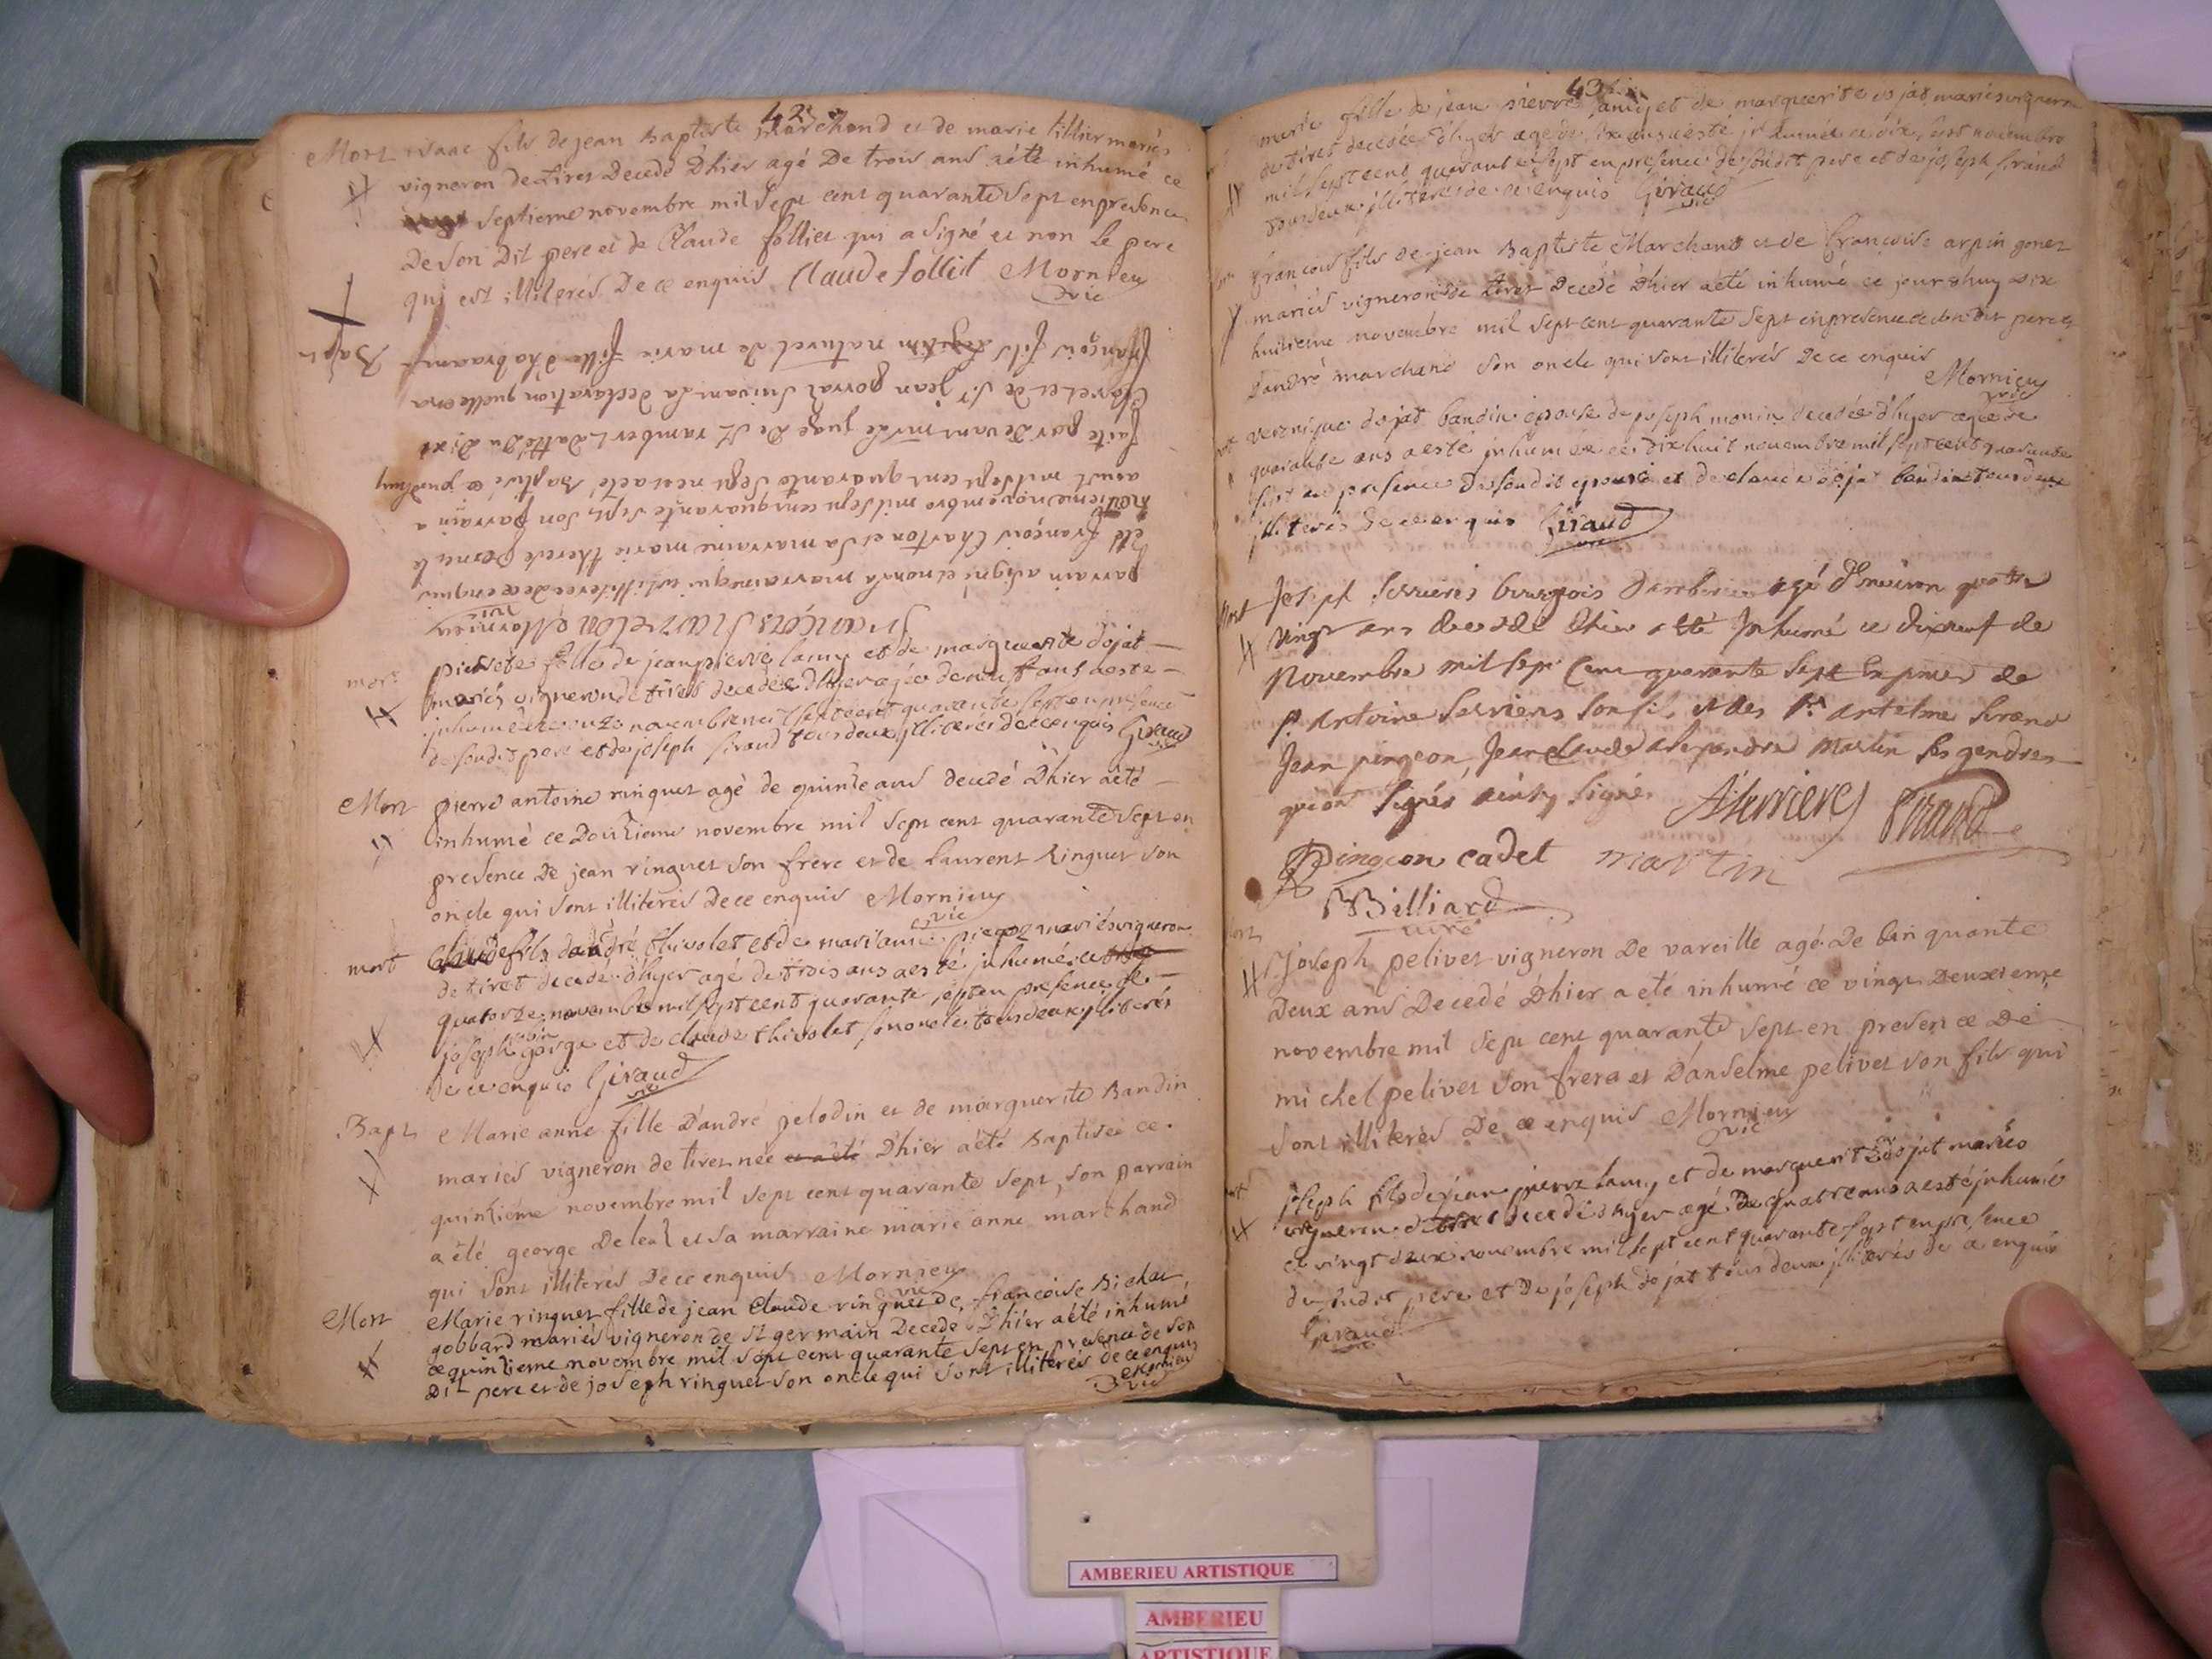 42
Mort isaac fils de jean Baptiste Marchand et de marie tillier mariés
vigneron de tiret Decedé Dhier agé De trois ans aété inhumé ce
septieme novembre mil Sept cent quarante Sept en presence
De son Dit pere et de Claude follief qui a signé et non le pere
qui est illiterés De ce enquis Claude follit Mornieu
vic
Bapt François fils naturel de marie fille
Claret et de Sr jean gorral suivant la declaration quelle en a
faite par devant mr le juge De St rambert Datté Du Dixe
aout mil sept cent quarante Sept né et aété Baptisé ce jourdhuy
novembre mil sept cent quarante Sept, son parrain a
eté François Charton et sa marraine marie therese
parrain a signé et non la marraine qui est illiteree de ce enquis
François Mornieu
vic
mort pierrete fille de jean pierre lamy et de marguerite dojat
mariés vigneron de tiret decedée dhyer agée de neuf ans aeste
inhumée ce onze novembre mil sept cent quarante sept en presence
de son dit pere et de joseph siraud tous deux illiteres de ce enquis Giraud
vic
Mort pierre antoine ringuet agé de quinze ans decedé Dhier aété
inhumé ce Douzieme novembre mil Sept cent quarante Sept en
presence De jean ringuet son frere et de laurent Ringuet son
oncle qui sont illiterés De ce enquis Mornieu
vic
mort Claude fils dandré thivolet et de mariane mariés vigneron
de tiret decedé dhyer agé de trois ans aesté inhumé ce
quatorze novembre mil sept cent quarante sept en presence de
joseph et de claude thivolet son oncle tous deux illiterés
de ce enquis Giraud
vic
Bapt Marie anne fille D'andré pelodin et de marguerite Bandin
mariés vigneron de tiret née et aété Dhier aété Baptisée ce
quinzième novembre mil Sept cent quarante Sept, son parrain
a été george De leaz et sa marraine marie anne marchand
qui sont illiteres De ce enquis Mornieu
vic
Mort Marie ringuet fille de jean Claude ringuet de francoise Bichat
gobbard mariés vigneron de St germain Decedé Dhier aété inhumé
ce quinzieme novembre mil Sept cent quarante Sept en presence de son
Dit pere et de joseph ringuet son oncle qui sont illiterés de ce enquis
Mornieu
vic
43
marie fille de jean pierre lamy et de marguerite dojat mariés vigneron
de tiret decedée dhyer agée de six ans aesté inhumée ce dix sept novembre
mil sept cent quarante sept en presence de sondit pere et de joseph siraud
tous deux illiterés de ce enquis Giraud
vic
François fils de jean Baptiste Marchand et de Francoise arpin gonet
mariés vigneron de tiret Decedé Dhier aété inhumé ce jourdhuy Dix
huitieme novembre mil Sept cent quarante Sept en presence de son Dit pere et
D'andré marchand son oncle qui sont illiterés De ce enquis
Mornieu
vic
veronique dojat bandin epouse de joseph monin decedée dhyer agée de
quarante ans aesté inhumée ce dix huit novembre mil sept cent quarante
sept en presence de son dit epoux et de claude dojat bandin tous deux
illiterés de ce enquis Giraud
vic
Mort Joseph Serrieres bourgois D'amberieu agé d'environ quatre
vingt ans decedé Dhier a été Inhumé ce dixneuf de
Novembre mil sept Cent quarante Sept En presence de
Sr Antoine Serrieres son fils et des Srs antelme Sirand
Jean pingeon, Jean claude alexandre Martin ses gendres
qui ont signés ainsy signé A Serrieres Sirand
Pingeon cadet martin
Billiard
curé
Mort Joseph pelivet vigneron De vareille agé De Cinquante
Deux ans Decedé Dhier a été inhumé ce vingt Deuxieme
novembre mil Sept cent quarante Sept en presence De
michel pelivet son frere et D'anselme pelivet son fils qui
sont illiterés De ce enquis Mornieu
vic
joseph fils de jean pierre lamy et de marguerite dojat mariés
vigneron de tiret decedé dhyer agé de quatre ans aesté inhumé
ce vingt deux novembre mil sept cent quarante sept en presence
de sondit pere et de joseph dojat tous deux illiterés de ce enquis
Giraud
vic
AMBERIEU ARTISTIQUE
AMBERIEU
ARTISTIQUE